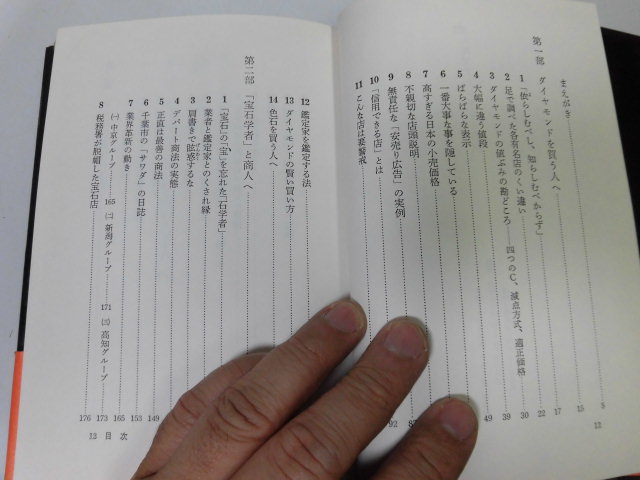 まえがき
第一部 ダイヤモンドを買う人へ
1 「依らしむべし、知らしむべからず」
2 足で調べた各有名店のくい違い
3 ダイヤモンドの値ぶみの勘どころ 四つのC、減点方式、適正価格
4 大幅に違う値段
5 ばらばらな表示
6 一番大事な事を隠している
7 高すぎる日本の小売価格
8 不親切な店頭説明
9 無責任な「安売り広告」の実例
10 「信用できる店」とは
11 こんな店は要警戒
5
12
15
17
22
30
39
49
92
12 鑑定家を鑑定する法
13 ダイヤモンドの賢い買い方
14 色石を買う人へ
第二部 「宝石学者」と商人へ
1 「宝石」の「宝」を忘れた「石学者」
2 業者と鑑定家とのくされ縁
3 肩書きで眩惑するな
4 デパート商法の実態
5 正直は最善の商法
6 千葉市の「サワダ」の日誌
7 業界革新の動き
(一) 中京グループ 165 (二) 新潟グループ 171 (三) 高知グループ
8 税務署が脱帽した宝石店
149
153
165
173
176
13 目次